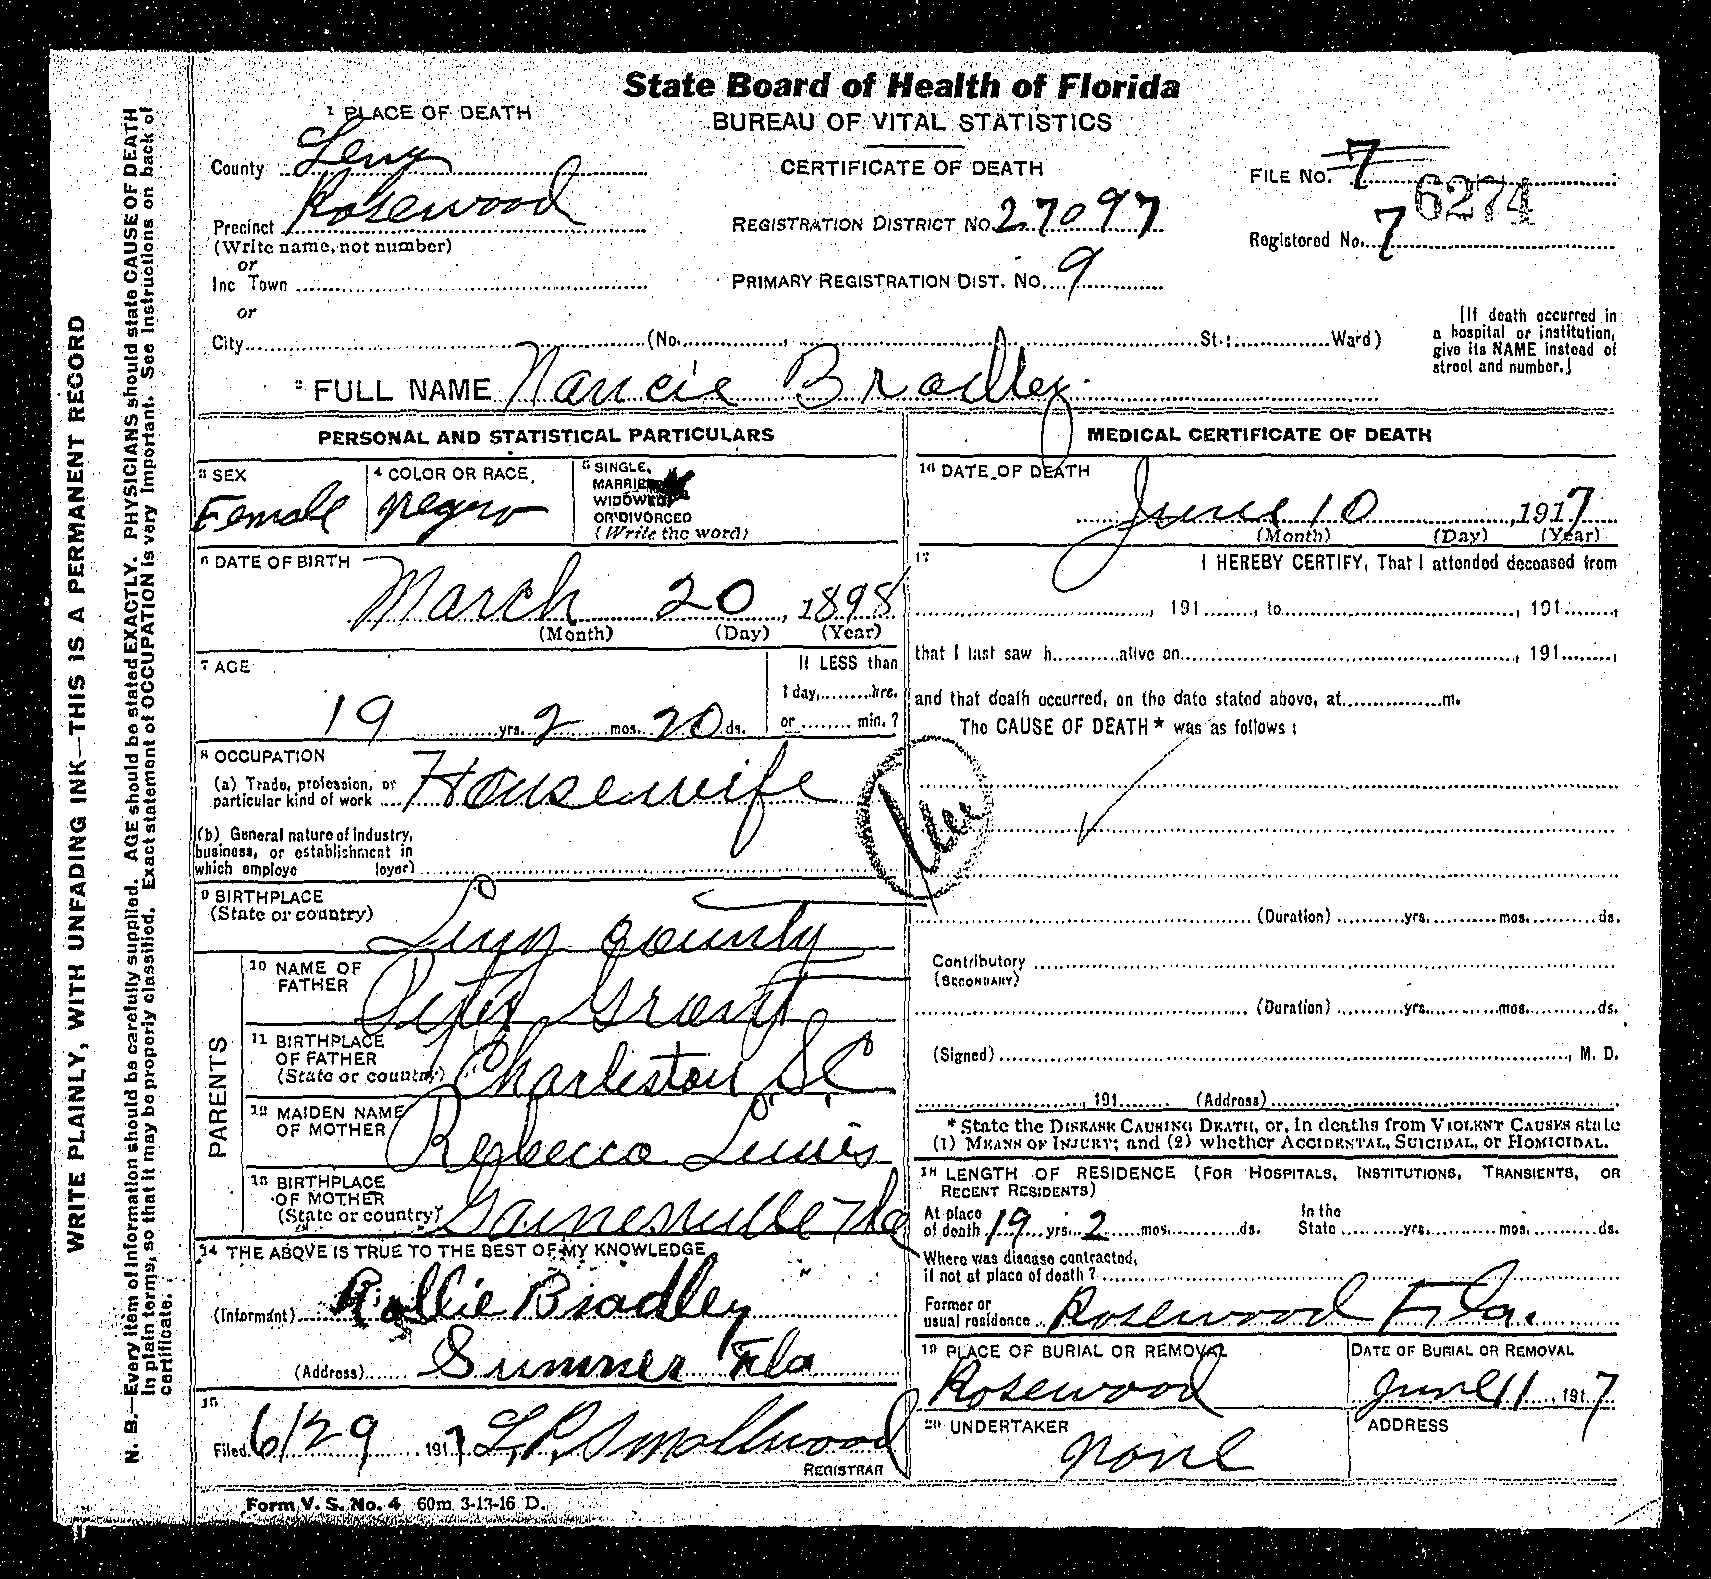 State Board of Health of Florida
BUREAU OF VITAL STATISTICS
CERTIFICATE OF DEATH
1 PLACE OF DEATH
County Levy
Precinct Rosewood
(Write name, not number)
or
Inc Town
or
City (No. , St.; Ward)
REGISTRATION DISTRICT NO. 27097
PRIMARY REGISTRATION DIST. NO. 9
FILE NO. 7
6274
Registered No. 7
[If death occurred in
a hospital or institution,
give its NAME instead of
street and number.]
2 FULL NAME Nancie Bradley
PERSONAL AND STATISTICAL PARTICULARS
3 SEX
Female
4 COLOR OR RACE
negro
5 SINGLE,
MARRIED
WIDOWED
OR DIVORCED
(Write the word)
6 DATE OF BIRTH
March 20, 1898
(Month) (Day) (Year)
7 AGE
19 yrs. 2 mos. 20 ds.
If LESS than
1 day, hrs.
or min.?
8 OCCUPATION
(a) Trade, profession, or
particular kind of work Housewife
(b) General nature of industry,
business, or establishment in
which employe loyer)
9 BIRTHPLACE
(State or country)
Levy County
PARENTS
10 NAME OF
FATHER
Peter Grant
11 BIRTHPLACE
OF FATHER
(State or country) Charleston S.C.
12 MAIDEN NAME
OF MOTHER Rebecca Lewis
13 BIRTHPLACE
OF MOTHER
(State or country) Gainesville Fla
14 THE ABOVE IS TRUE TO THE BEST OF MY KNOWLEDGE
(Informant) Rallie Bradley
(Address) Sumner Fla
15
Filed 6/29 1917 L.P. Smallwood
REGISTRAR
Form V. S. No. 4 60m 3-13-16 D.
MEDICAL CERTIFICATE OF DEATH
16 DATE OF DEATH
June 10, 1917
(Month) (Day) (Year)
17 I HEREBY CERTIFY, That I attended deceased from
, 191 , to , 191 ,
that I last saw h alive on , 191 ,
and that death occurred, on the date stated above, at m.
The CAUSE OF DEATH * was as follows:
(Duration) yrs. mos. ds.
Contributory
(SECONDARY)
(Duration) yrs. mos. ds.
(Signed) , M. D.
, 191 (Address)
* State the DISEASE CAUSING DEATH, or, in deaths from VIOLENT CAUSES state
(1) MEANS OF INJURY; and (2) whether ACCIDENTAL, SUICIDAL, or HOMICIDAL.
18 LENGTH OF RESIDENCE (FOR HOSPITALS, INSTITUTIONS, TRANSIENTS, OR
RECENT RESIDENTS)
At place
of death 19 yrs. 2 mos. ds. In the
State yrs. mos. ds.
Where was disease contracted,
if not at place of death?
Former or
usual residence Rosewood Fla.
19 PLACE OF BURIAL OR REMOVAL
Rosewood
DATE OF BURIAL OR REMOVAL
June 11, 1917
20 UNDERTAKER
None
ADDRESS
WRITE PLAINLY, WITH UNFADING INK—THIS IS A PERMANENT RECORD
N. B.—Every item of information should be carefully supplied. AGE should be stated EXACTLY. PHYSICIANS should state CAUSE OF DEATH
in plain terms, so that it may be properly classified. Exact statement of OCCUPATION is very important. See instructions on back of
certificate.